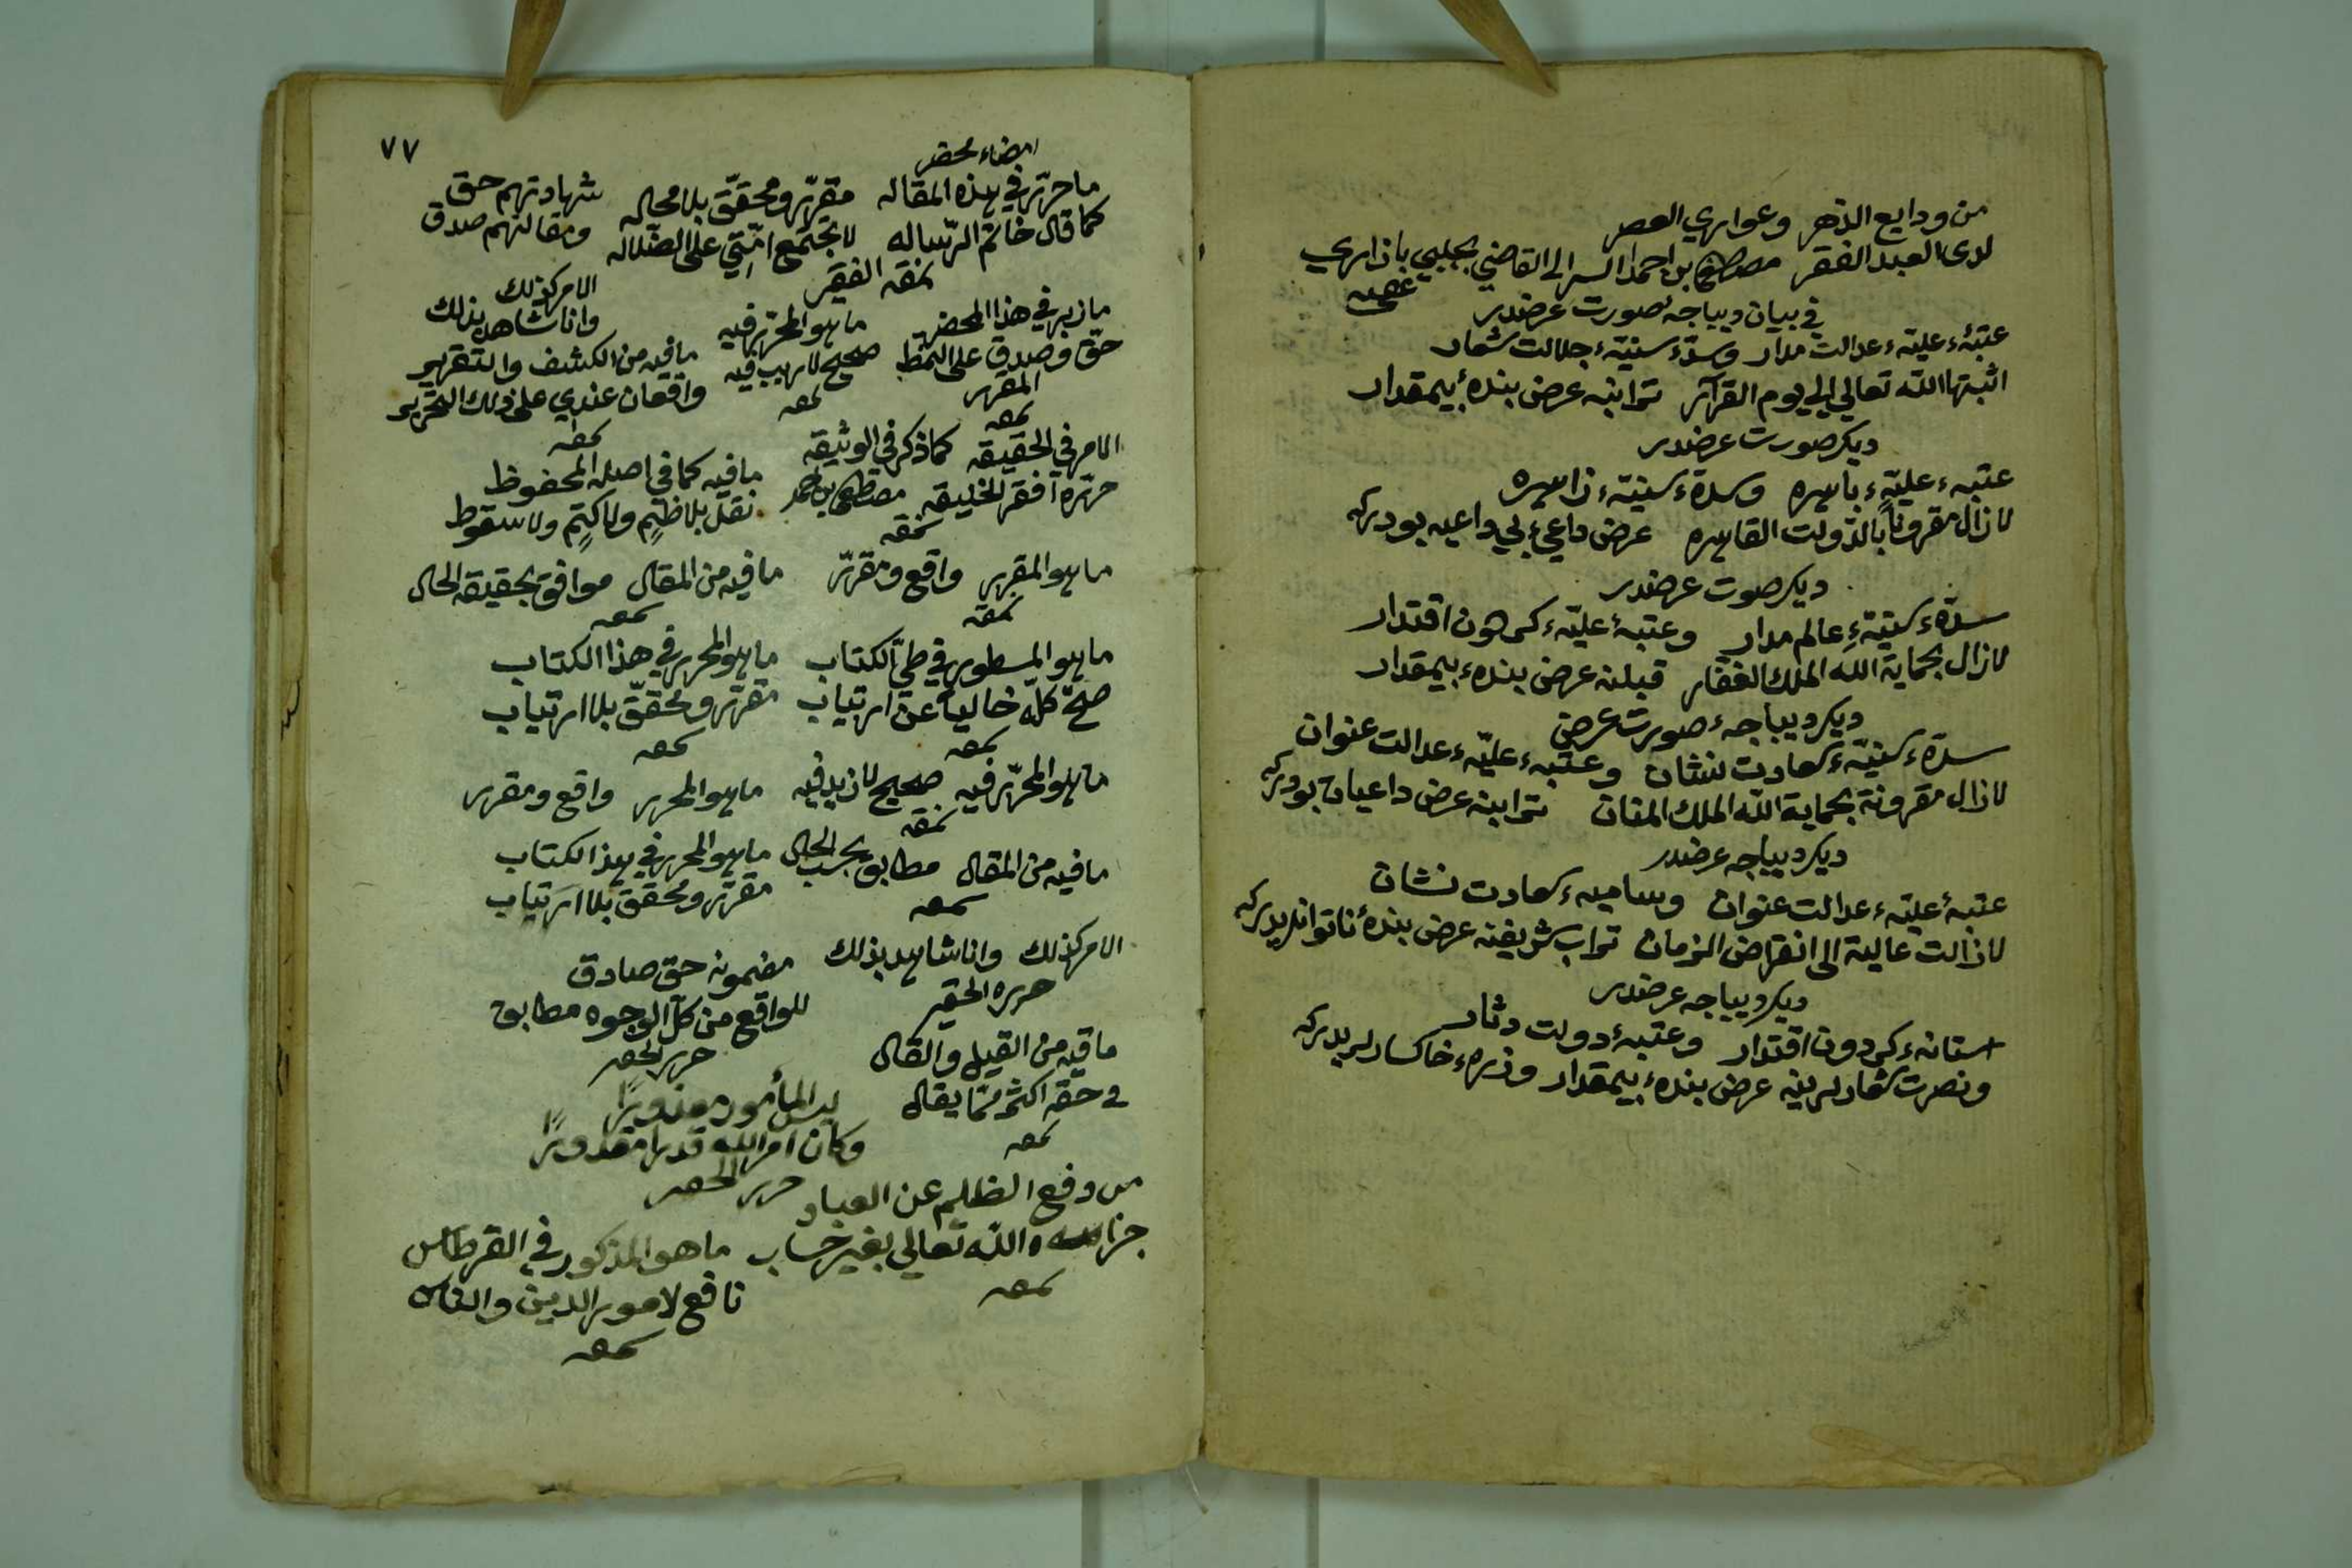 من ودايع الدهر وعواري العصر
لدى العبد الفقير مصطفى بن احمد القاضي بجلبي بازاري
عفى عنه
في بيان ديباجه صورت عرضدر
عتبهٔ عليهٔ عدالت مدار وسدهٔ سنيهٔ جلالت شعار
اثبتها الله تعالى الى يوم القرار ترابنه عرض بندهٔ بيمقدار
ديكر صورت عرضدر
عتبهٔ عليهٔ باهره وسدهٔ سنيهٔ زاهره
لازال مقرونًا بالدولت القاهره عرض داعئ بي داعيه بودركه
ديكر صوت عرضدر
سدهٔ سنيهٔ عالم مدار وعتبهٔ عليهٔ كردون اقتدار
لازال بحماية الله الملك الغفار قبلنه عرض بندهٔ بيمقدار
ديكر ديباجهٔ صورت عرض
سدهٔ سنيهٔ سعادت نشان وعتبهٔ عليهٔ عدالت عنوان
لازال مقرونة بحماية الله الملك المنان ترابنه عرض داعيان بودركه
ديكر ديباجه عرضدر
عتبهٔ عليهٔ عدالت عنوان وساميهٔ سعادت نشان
لازالت عالية الى انقراض الزمان تراب شريفنه عرض بندهٔ ناتوانلريدركه
ديكر ديباجه عرضدر
استانهٔ كردون اقتدار وعتبهٔ دولت دثار
ونصرت شعارلرينه عرض بندهٔ بيمقدار وذرهٔ خاكسارلريدركه
٧٧
امضاء محضر
ما حرّر في هذه المقاله مقرّر ومحقّق بلا محاله
كما قال خاتم الرّساله لا يجتمع امّتي على الضّلاله
نمقه الفقير
شهادتهم حق
ومقالتهم صدق
ما زبر في هذا المحضر
حقّ وصدق على النمط المقرر
نمقه
ما هو المحرّر فيه
صحيح لا ريب فيه
نمقه
الامر كذلك
وانا شاهد بذلك
ما فيه من الكشف والتقرير
واقعان عندي على ذلك التحرير
نمقه
الامر في الحقيقه كما ذكر في الوثيقه
حرّره افقر الخليقه مصطفى بن احمد
نمقه
ما فيه كما في اصله المحفوظ
نقل بلا ظيم ولا كتم ولا سقوط
ما هو المقرر واقع ومقرّر
نمقه
ما فيه من المقال موافق بحقيقة الحال
نمقه
ما هو المسطور في طيّ الكتاب
صحّ كلّه خاليًا عن ارتياب
نمقه
ما هو المحرر في هذا الكتاب
مقرّر ومحقّق بلا ارتياب
نمقه
ما هو المحرّر فيه صحيح لا زيد فيه
نمقه
ما هو المحرر واقع ومقرر
ما فيه من المقال مطابق بحسب الحال
نمقه
ما هو المحرر في هذا الكتاب
مقرّر ومحقق بلا ارتياب
الامر كذلك وانا شاهد بذلك
حرره الحقير
مضمونه حق صادق
للواقع من كلّ الوجوه مطابق
حرره الحقير
ما فيه من القيل والقال
في حقّه اكثر ممّا يقال
نمقه
ليس المأمور معذورًا
وكان امر الله قدرا مقدورًا
حرره الحقير
من دفع الظلم عن العباد
جزاه الله تعالى بغير حساب
نمقه
ما هو المذكور في القرطاس
نافع لامور الدين والناس
نمقه